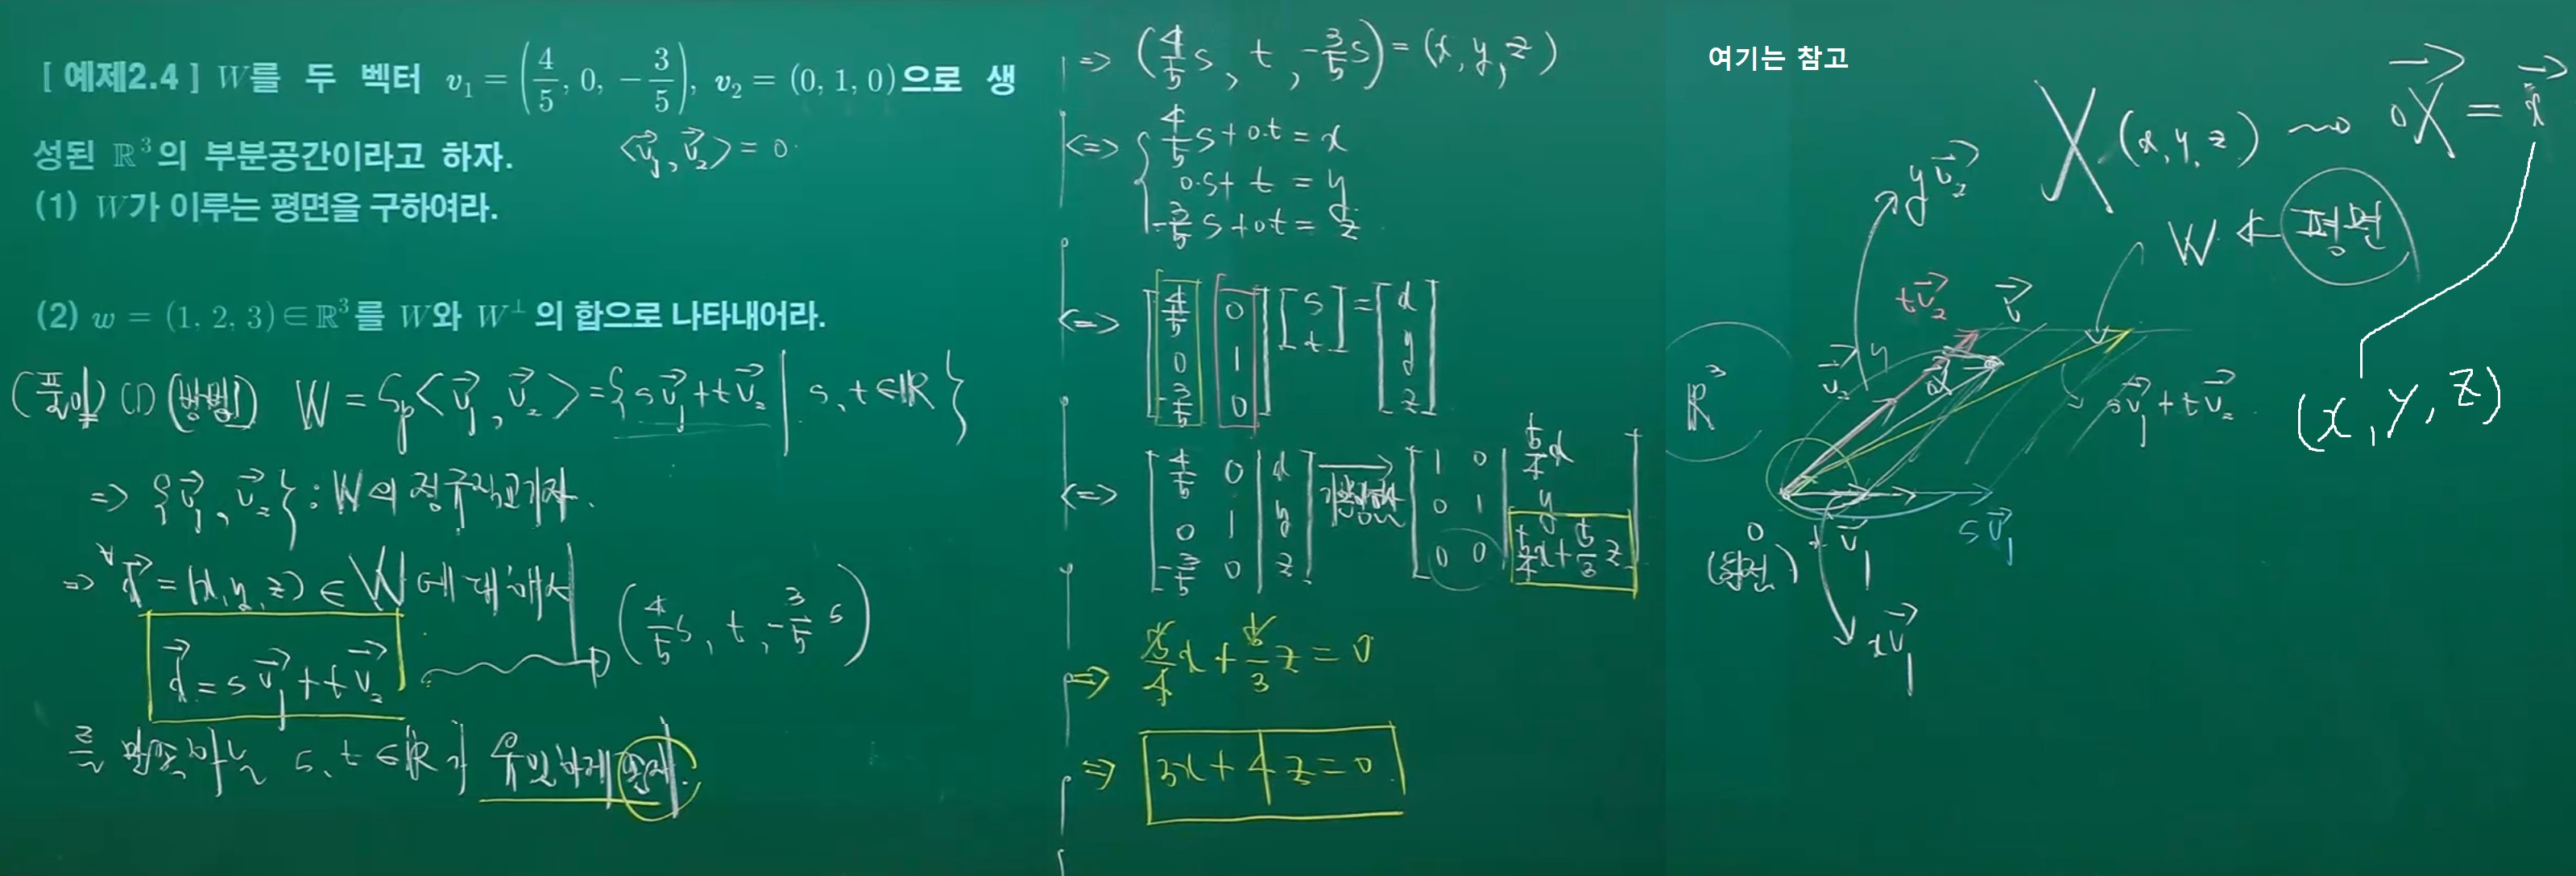 [ 예제2.4 ] W를 두 벡터 v₁ = (4/5, 0, −3/5), v₂ = (0, 1, 0)으로 생
성된 ℝ³의 부분공간이라고 하자.
⟨v₁, v₂⟩ = 0
(1) W가 이루는 평면을 구하여라.
(2) w = (1, 2, 3)∈ℝ³를 W와 W^⊥의 합으로 나타내어라.
(풀이) (1) (방법1) W = Sp<v₁, v₂> = {sv₁ + tv₂ | s, t ∈ ℝ}
=> {v₁, v₂} : W의 정규직교기저.
=> ∀x = (x, y, z) ∈ W 에 대해서
x = sv₁ + tv₂
(4/5 s, t, −3/5 s)
를 만족하는 s, t ∈ ℝ가 유일하게 존재.
=> (4/5 s, t, −3/5 s) = (x, y, z)
<=> { 4/5 s + 0·t = x
0·s + t = y
−3/5 s + 0·t = z
<=> [4/5 0] [s] = [x]
[0 1] [t] [y]
[−3/5 0] [z]
<=> [4/5 0 | x] [1 0 | 5/4 x]
[0 1 | y] [0 1 | y]
[−3/5 0 | z] [0 0 | 5/4 x + 5/3 z]
=> 5/4 x + 5/3 z = 0
=> 3x + 4z = 0
여기는 참고
X(x, y, z) ⇝ 0X = x
W ← 평면
yv₂
tv₂
v
v₂
y
x
sv₁ + tv₂
(x, y, z)
ℝ³
0
(원점)
v₁
sv₁
xv₁